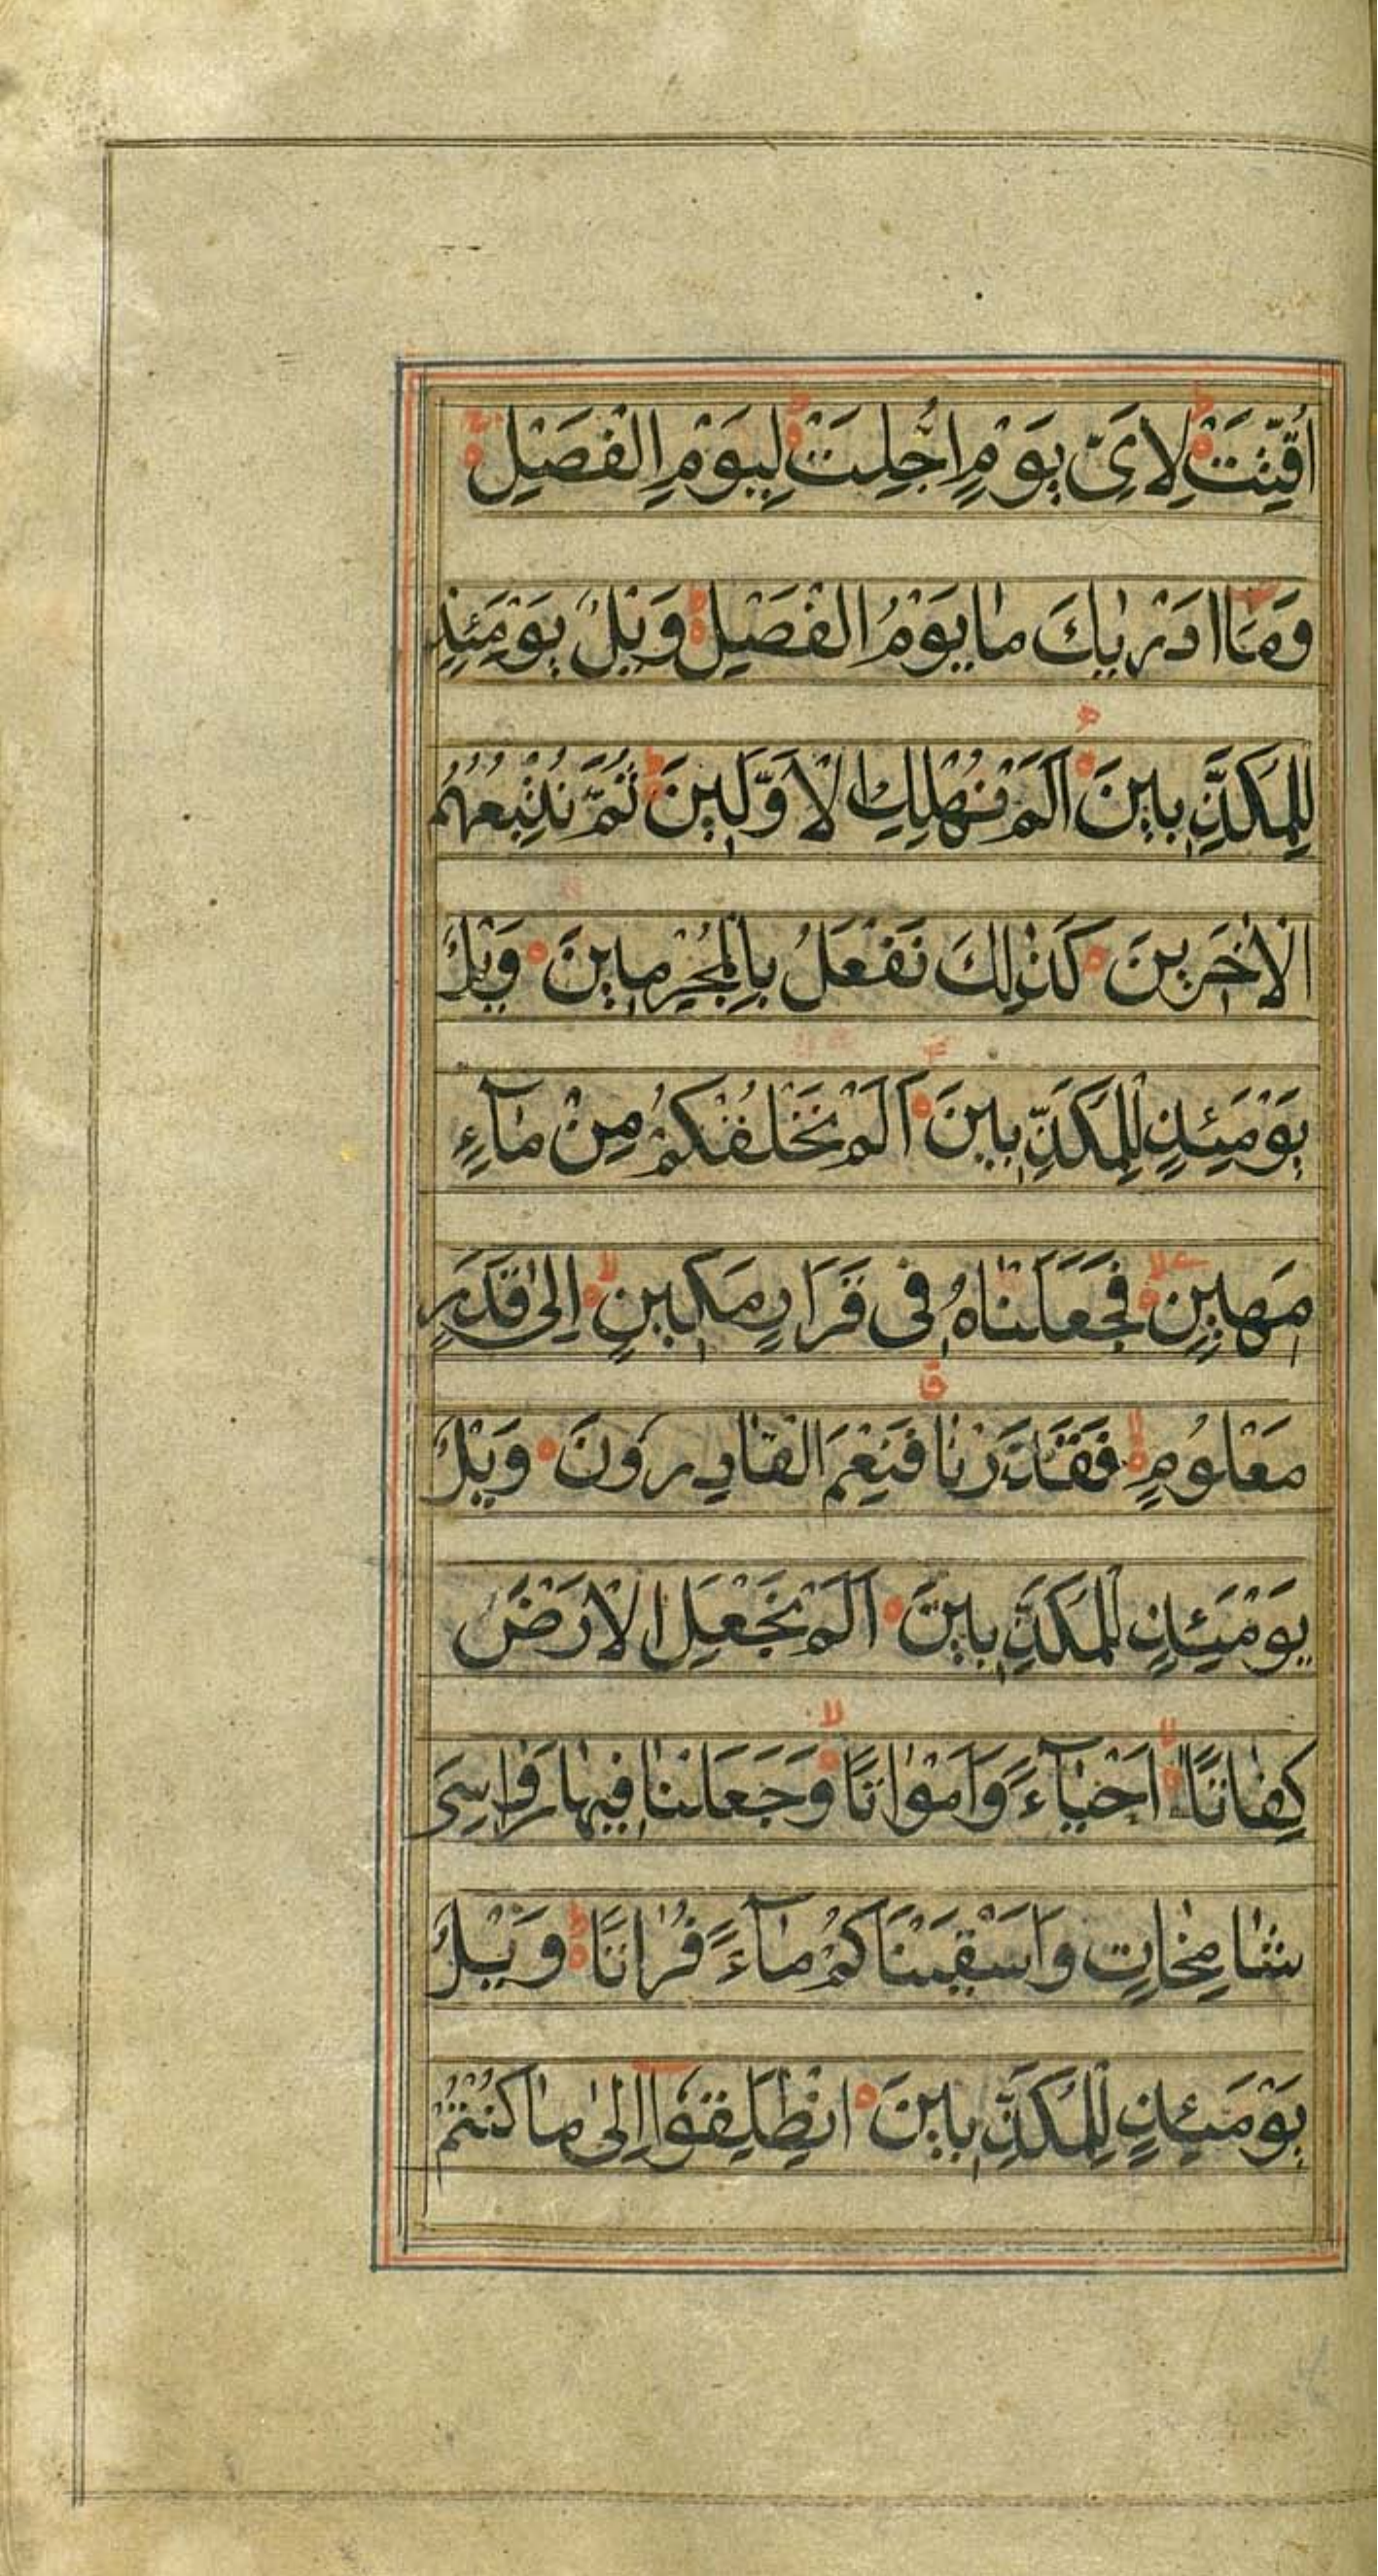 اُقِّتَتْ لِاَىِّ يَوْمٍ اُجِّلَتْ لِيَوْمِ الْفَصْلِ
وَمَا اَدْرٰيكَ مَا يَوْمُ الْفَصْلِ وَيْلٌ يَوْمَئِذٍ
لِلْمُكَذِّبِينَ اَلَمْ نُهْلِكِ الْاَوَّلِينَ ثُمَّ نُتْبِعُهُمُ
الْاٰخِرِينَ كَذٰلِكَ نَفْعَلُ بِالْمُجْرِمِينَ وَيْلٌ
يَوْمَئِذٍ لِلْمُكَذِّبِينَ اَلَمْ نَخْلُقْكُمْ مِنْ مَآءٍ
مَهِينٍ فَجَعَلْنَاهُ فِى قَرَارٍ مَكِينٍ اِلٰى قَدَرٍ
مَعْلُومٍ فَقَدَرْنَا فَنِعْمَ الْقَادِرُونَ وَيْلٌ
يَوْمَئِذٍ لِلْمُكَذِّبِينَ اَلَمْ نَجْعَلِ الْاَرْضَ
كِفَاتًا اَحْيَآءً وَاَمْوَاتًا وَجَعَلْنَا فِيهَا رَوَاسِىَ
شَامِخَاتٍ وَاَسْقَيْنَاكُمْ مَآءً فُرَاتًا وَيْلٌ
يَوْمَئِذٍ لِلْمُكَذِّبِينَ اِنْطَلِقُوا اِلٰى مَا كُنْتُمْ